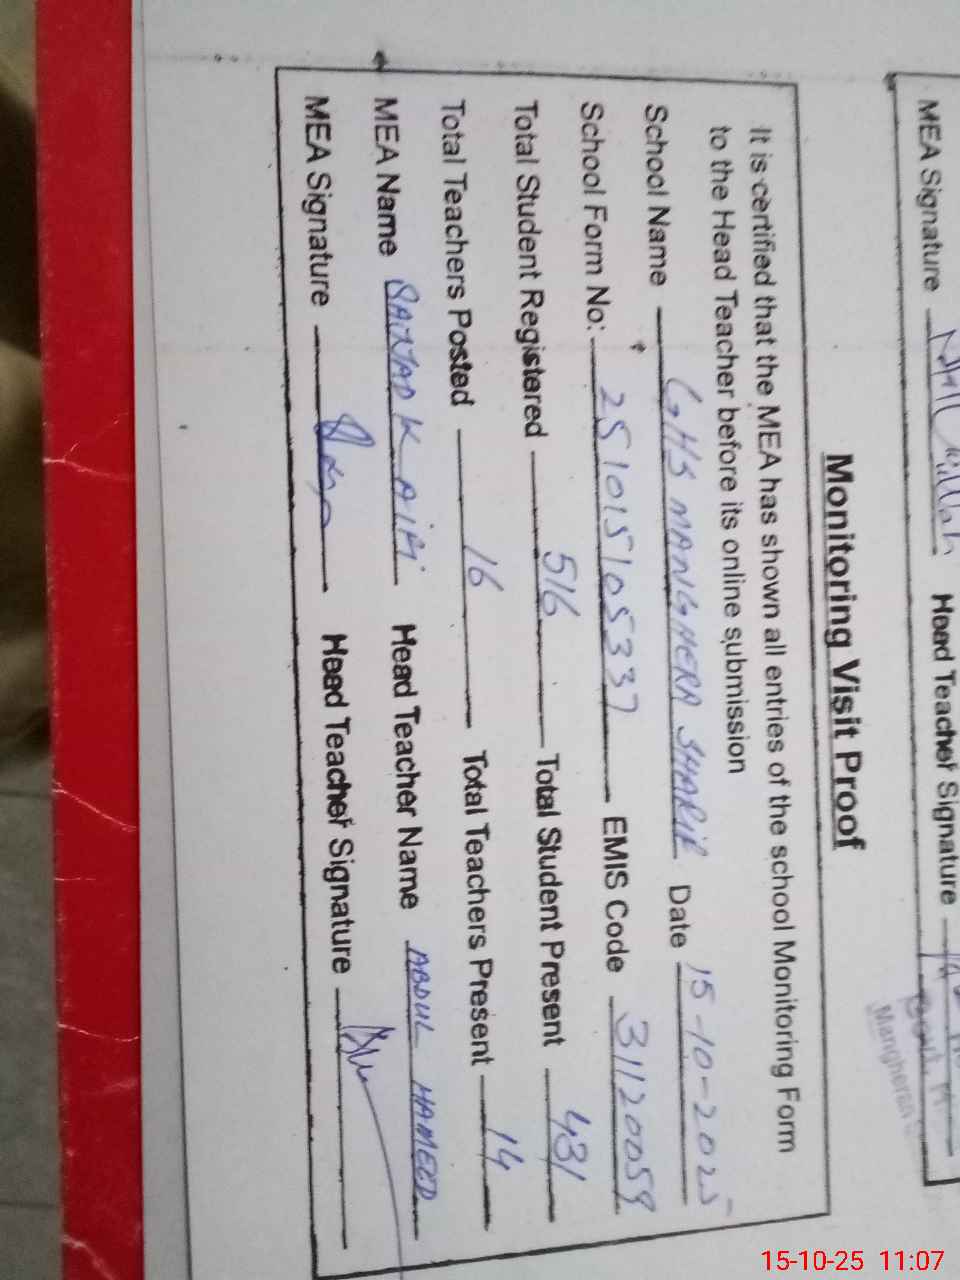 MEA Signature Head Teacher Signature
Mangheran
Monitoring Visit Proof
It is certified that the MEA has shown all entries of the school Monitoring Form
to the Head Teacher before its online submission
School Name GHS MANGHERA SHARIF Date 15-10-2025
School Form No: 251015105337 EMIS Code 31120059
Total Student Registered 516 Total Student Present 431
Total Teachers Posted 16 Total Teachers Present 14
MEA Name SAJJAD K Head Teacher Name ABDUL HAMEED
MEA Signature Head Teacher Signature
15-10-25 11:07